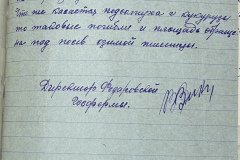 Что же касается подсолнуха и кукурузы
то таковые погибли и площадь обраще-
на под посев озимой пшеницы.
Директор Федаровской
Госфермы.